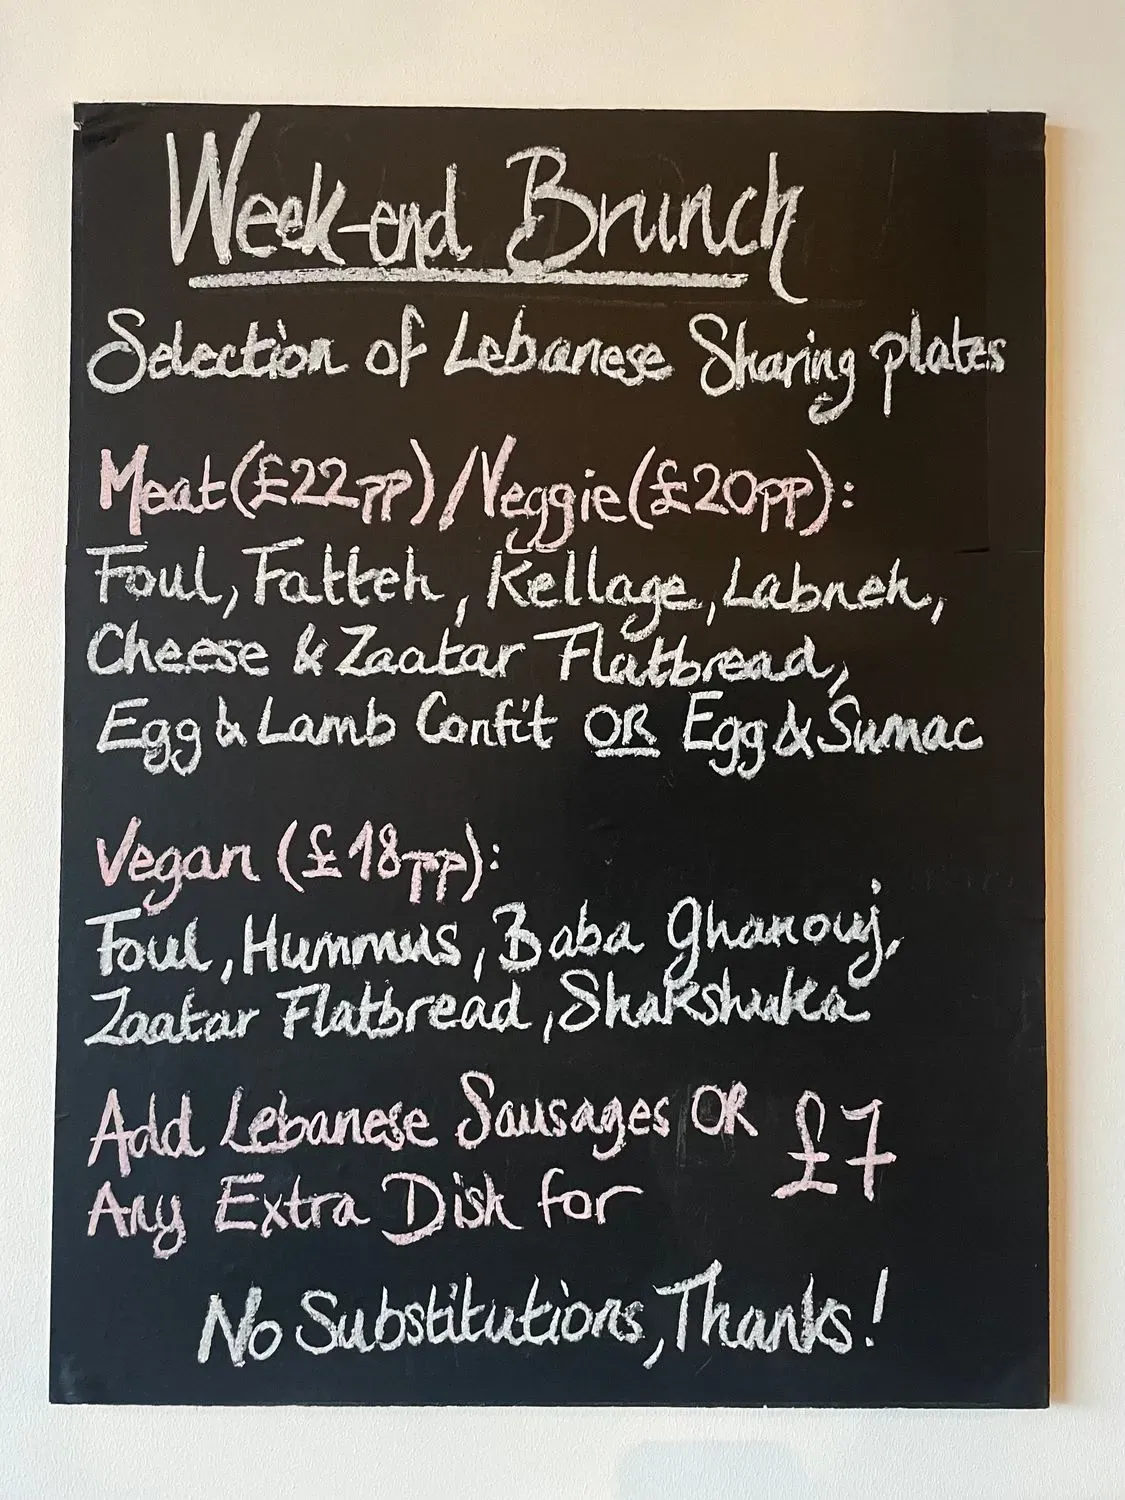 Week-end Brunch
Selection of Lebanese Sharing plates
Meat (£22pp) / Veggie (£20pp):
Foul, Fatteh, Kellage, Labneh,
Cheese & Zaatar Flatbread,
Egg & Lamb Confit OR Egg & Sumac
Vegan (£18pp):
Foul, Hummus, Baba Ghanouj,
Zaatar Flatbread, Shakshuka
Add Lebanese Sausages OR
Any Extra Dish for £7
No Substitutions, Thanks!